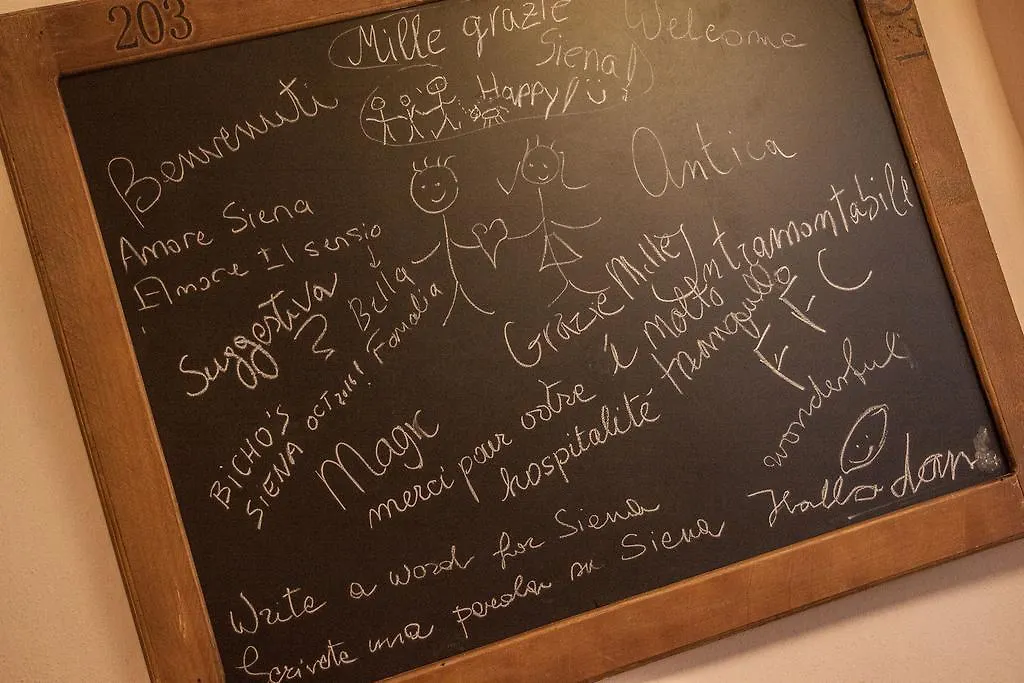 203
Mille grazie
Siena!
Welcome
Happy!
Benvenuti
Antica
Amore Siena
Amore Il sensio
Suggestiva
Bella
Familia
BICHO'S
SIENA OCT 2016!
Grazie Mille!
Intramontabile
é molto
tranquillo
Magic
merci pour votre
hospitalité
wonderful
Hallo dan
Write a word for Siena
Scrivete una parola su Siena